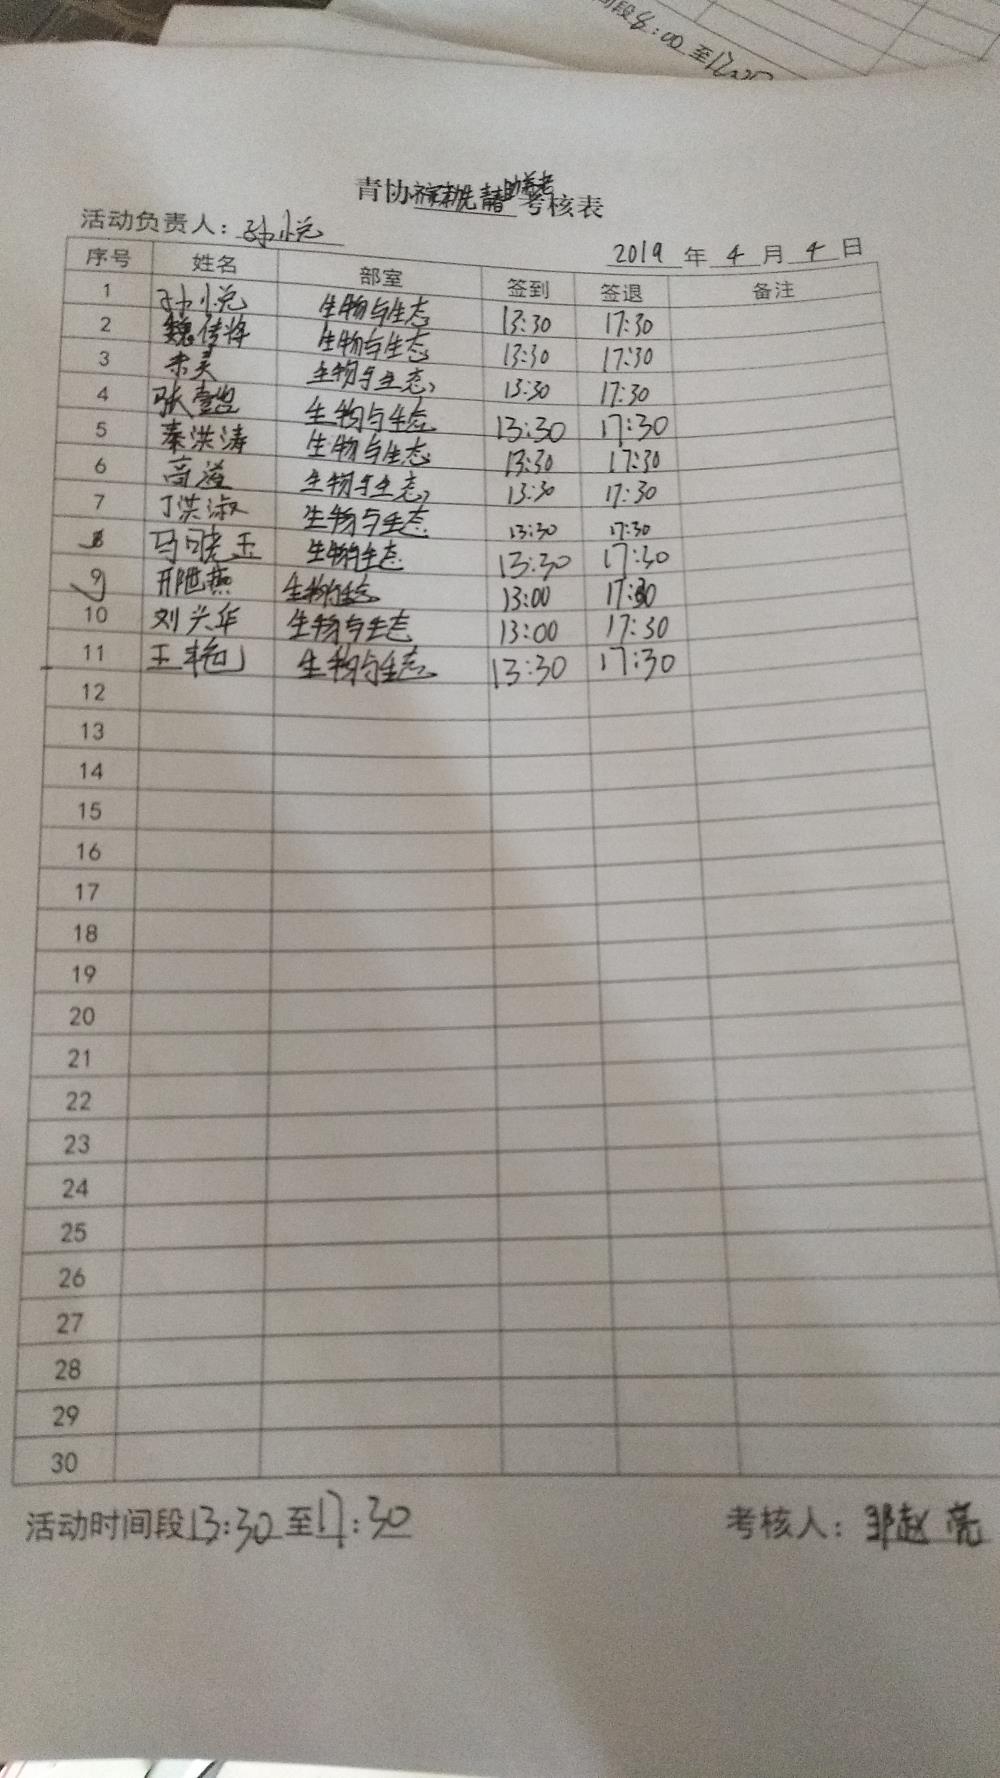 间段8:00至12:00
青协 青春助养老考核表
活动负责人：孙小悦
2019年4月4日
序号 姓名 部室 签到 签退 备注
1 孙小悦 生物与生态 13:30 17:30
2 魏传将 生物与生态 13:30 17:30
3 朱灵 生物与生态 13:30 17:30
4 张 生物与生态 13:30 17:30
5 秦洪涛 生物与生态 13:30 17:30
6 高溢 生物与生态 13:30 17:30
7 丁洪淑 生物与生态 13:30 17:30
8 马晓玉 生物与生态 13:30 17:30
9 邢 燕 生物与生态 13:00 17:30
10 刘兴华 生物与生态 13:00 17:30
11 王艳 生物与生态 13:30 17:30
12
13
14
15
16
17
18
19
20
21
22
23
24
25
26
27
28
29
30
活动时间段13:30至17:30 考核人：邹赵亮